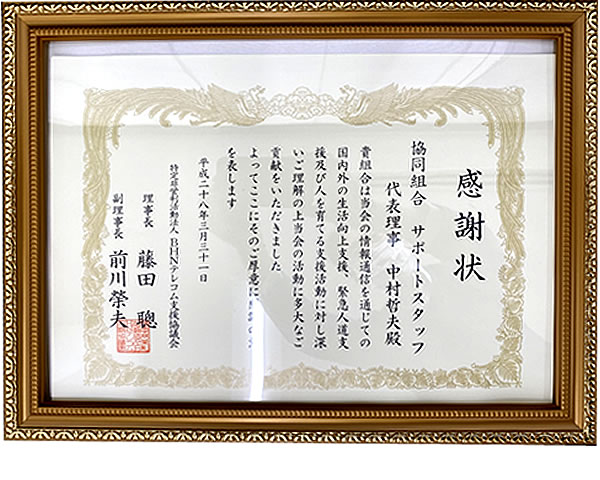 感謝状
協同組合 サポートスタッフ
代表理事 中村哲夫殿
貴組合は当会の情報通信を通じての
国内外の生活向上支援、緊急人道支
援及び人を育てる支援活動に対し深
いご理解の上当会の活動に多大なご
貢献をいただきました
よってここにそのご厚意に
を表します
平成二十八年三月三十一日
特定非営利活動法人 BHNテレコム支援協議会
理事長 藤田 聰
副理事長 前川榮夫